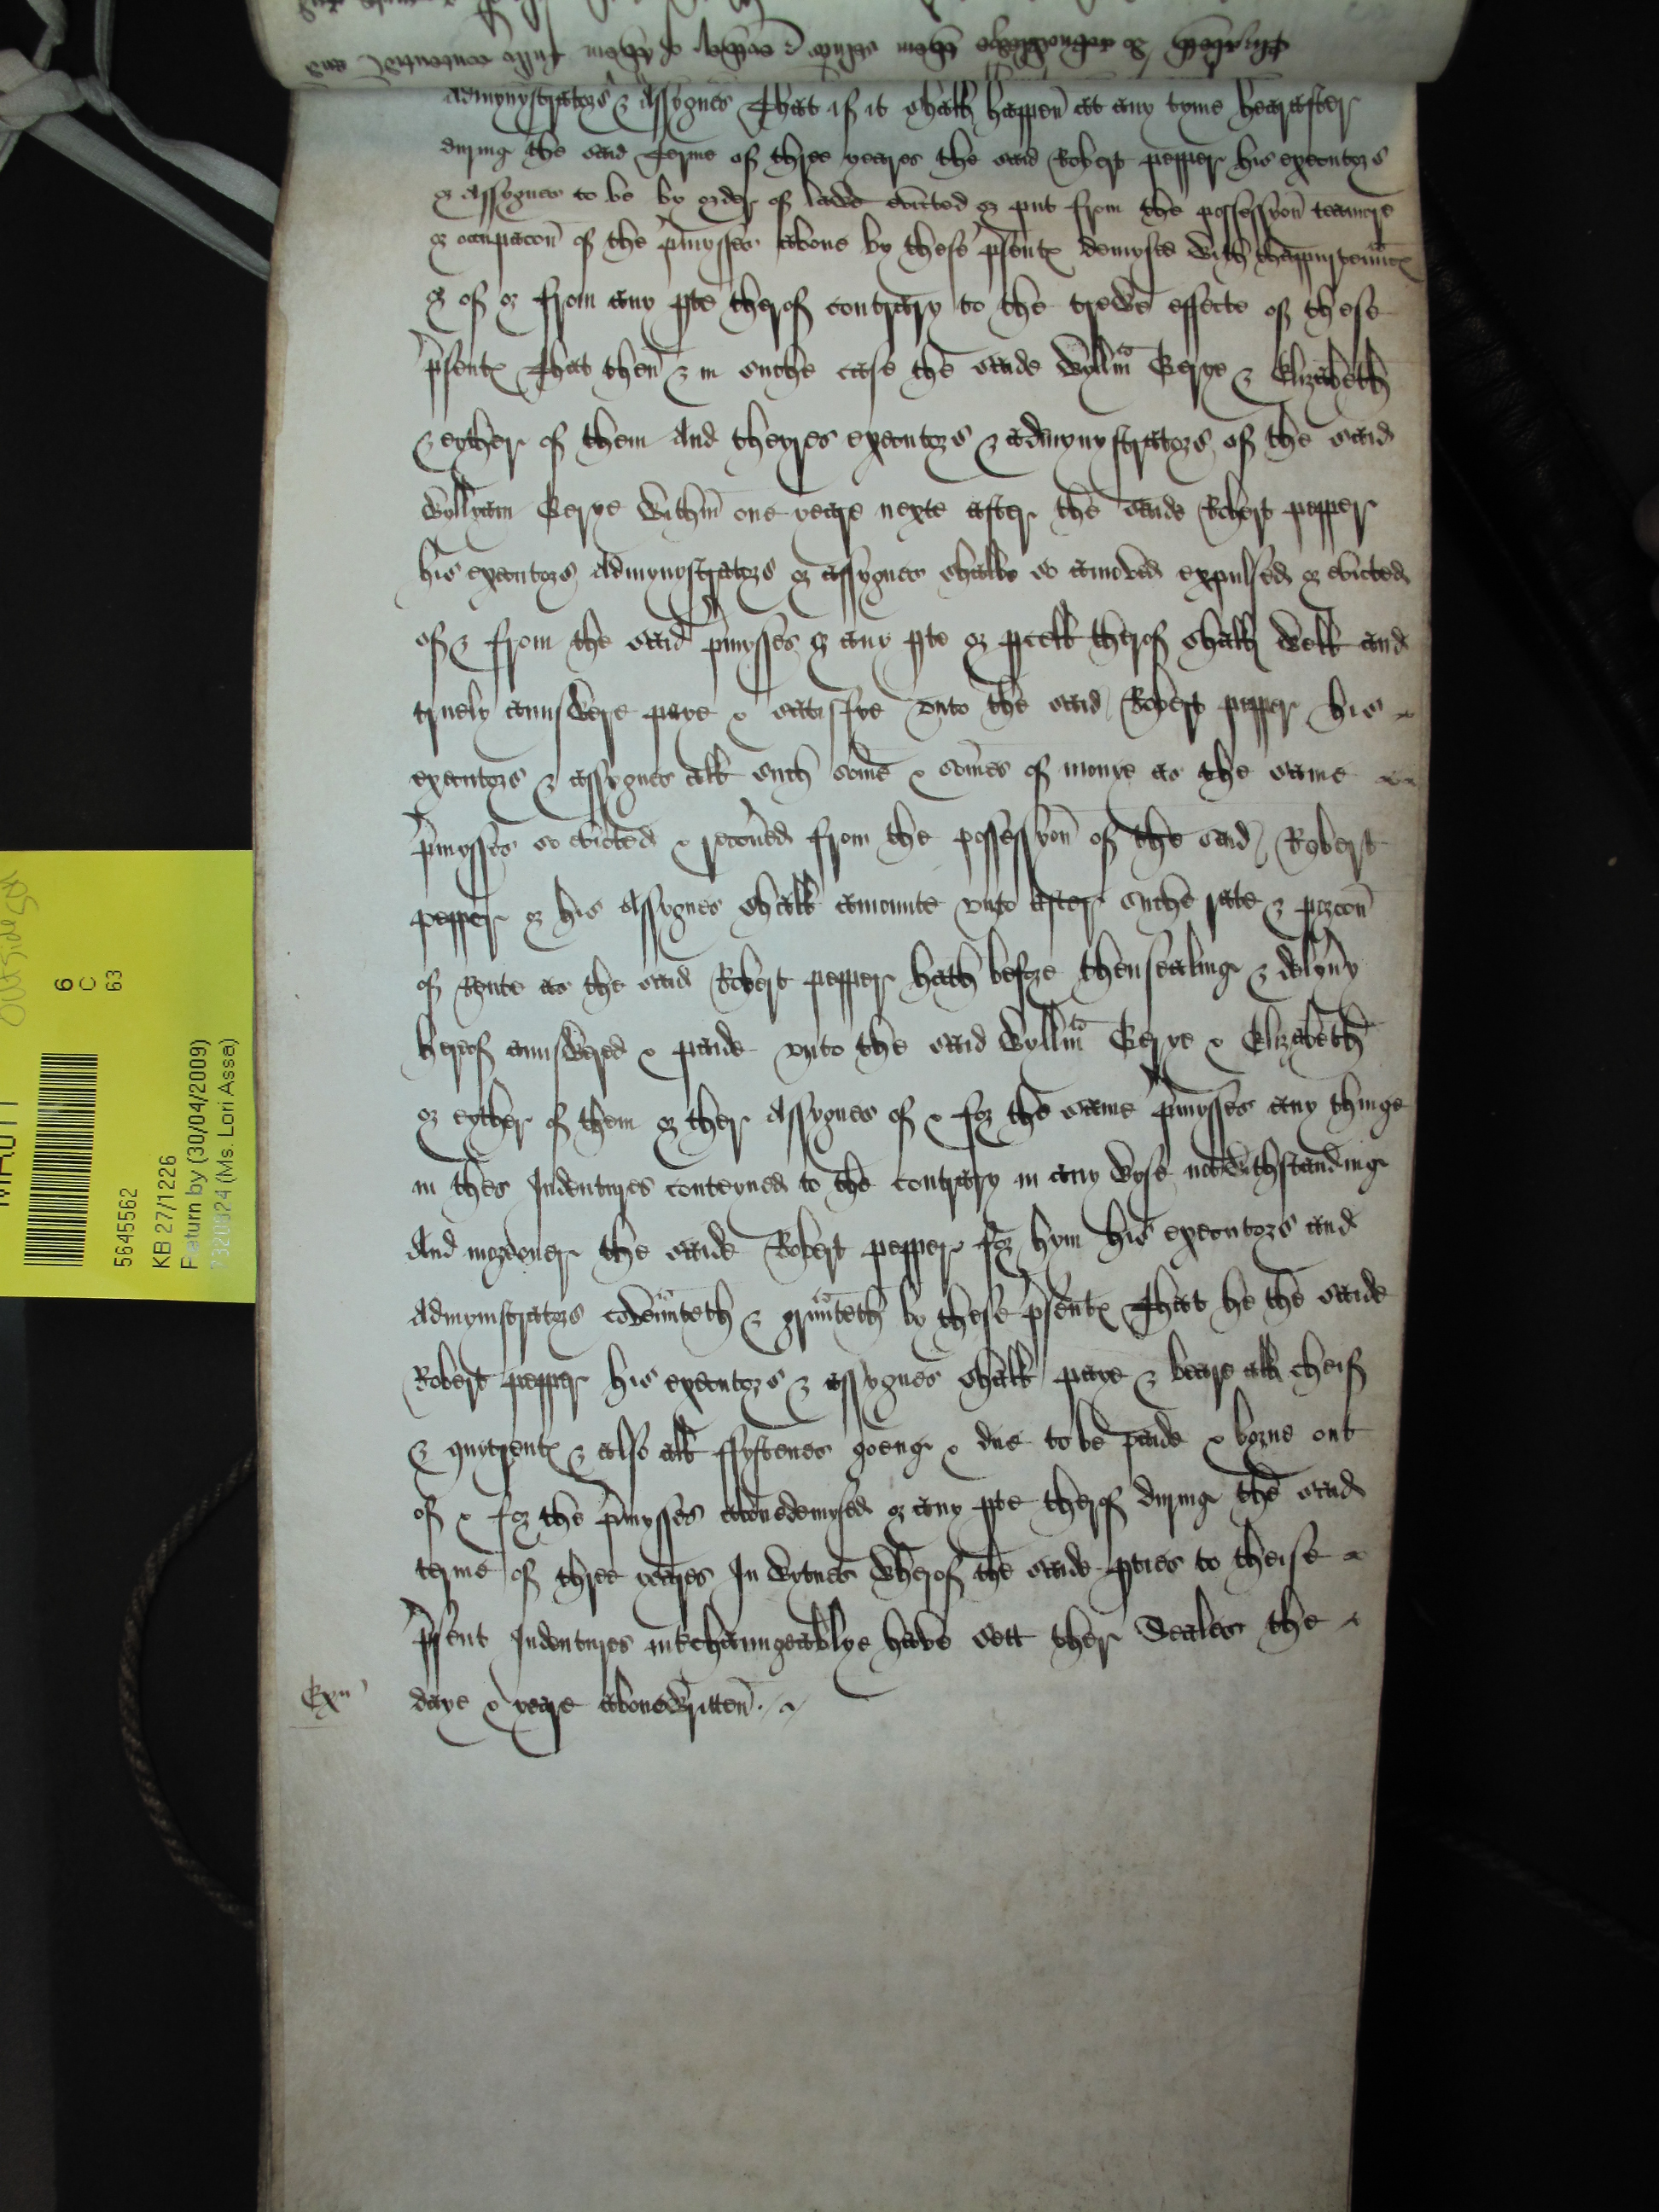 Admynystrators & Assygnes That if it shall happen at any tyme hearafter
during the said terme of three yeares the said Robert pepper his executors
or Assygnes to be by order of lawe evicted or put from the possessyon
or occupacon of the pmysses above by these psent demysed with
or of or from any pte therof contrary to the trewe effecte of these
psent That then & in suche case the saide Wyllm Gerye & Elizabeth
& eyther of them And theyres executors & admynystrators of the said
Wyllyam Gerye within one yeare nexte after the saide Robert pepper
his executors Admynystrators or assygnes shalbe so amoved expulsed or evicted
of & from the said pmysses or any pte or pcell therof shall well and
truely aunswere paye & satisfye vnto the said Robert pepper his
executors & assygnes all such some & somes of monye as the same
pmysses so evicted & recoued from the possessyon of the said Robert
pepper or his Assygnes shall amounte vnto after suche rate & porcon
of Rente as the said Robert pepper hath before thensealing & delyuy
herof aunswered & paide vnto the said Wyllm Gerye & Elizabeth
or eyther of them or ther Assygnes of & for the same pmysses any thinge
in thes Indentures conteyned to the contrary in any wyse notwithstanding
And moreouer the saide Robert pepper for hym his executors and
Admynistrators covennteth & grunteth by these psent That he the saide
Robert pepper his executors & assygnes shall paye & beare all cheif
& quytrent & also all ffyftenes goeng & due to be paide & borne out
of & for the pmysses abovedemysed or any pte therof during the said
terme of three yeares In wytnes wherof the saide pties to theise
psent Indentures interchaungeablye have sett ther Seales the
Exr
daye & yeare abovewritten
6
C
63
5645562
KB 27/1226
Return by (30/04/2009)
(Ms. Lori Assa)